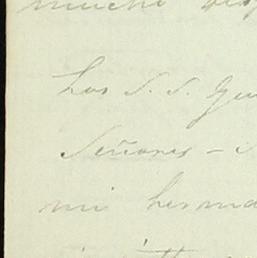 mucho
Los S. S. Gu
Señores -
mi herma